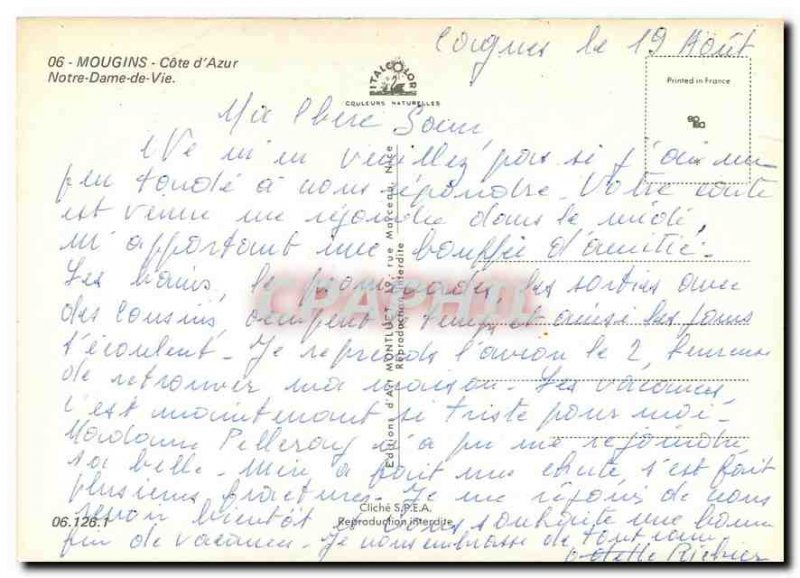 06 - MOUGINS - Côte d'Azur
Notre-Dame-de-Vie.
ITALCOLOR
COULEURS NATURELLES
Printed in France
Cagnes le 19 Août
Ma Chère Soeur
Ne m'en veuillez pas si j'ai un
peu tardé à vous répondre. Votre carte
est venue me rejoindre dans le midi,
m'apportant une bouffée d'amitié.
Les bains, les promenades, les sorties avec
des cousins, occupent le temps et ainsi les jours
s'écoulent. Je reprends l'avion le 2, heureuse
de retrouver ma maison. Les vacances,
c'est maintenant si triste pour moi.
Madame Pelleray n'a pu me rejoindre
sa belle-mère a fait une chute s'est fait
plusieurs fractures. Je me réjouis de vous
revoir bientôt et vous souhaite une bonne
fin de vacances. Je vous embrasse de tout coeur
Richier
Editions d'Art MONTLUET, 19, rue Marceau, Nice
Reproduction interdite
CPAPHIL
06.126.1
Cliché S.P.E.A.
Reproduction interdite